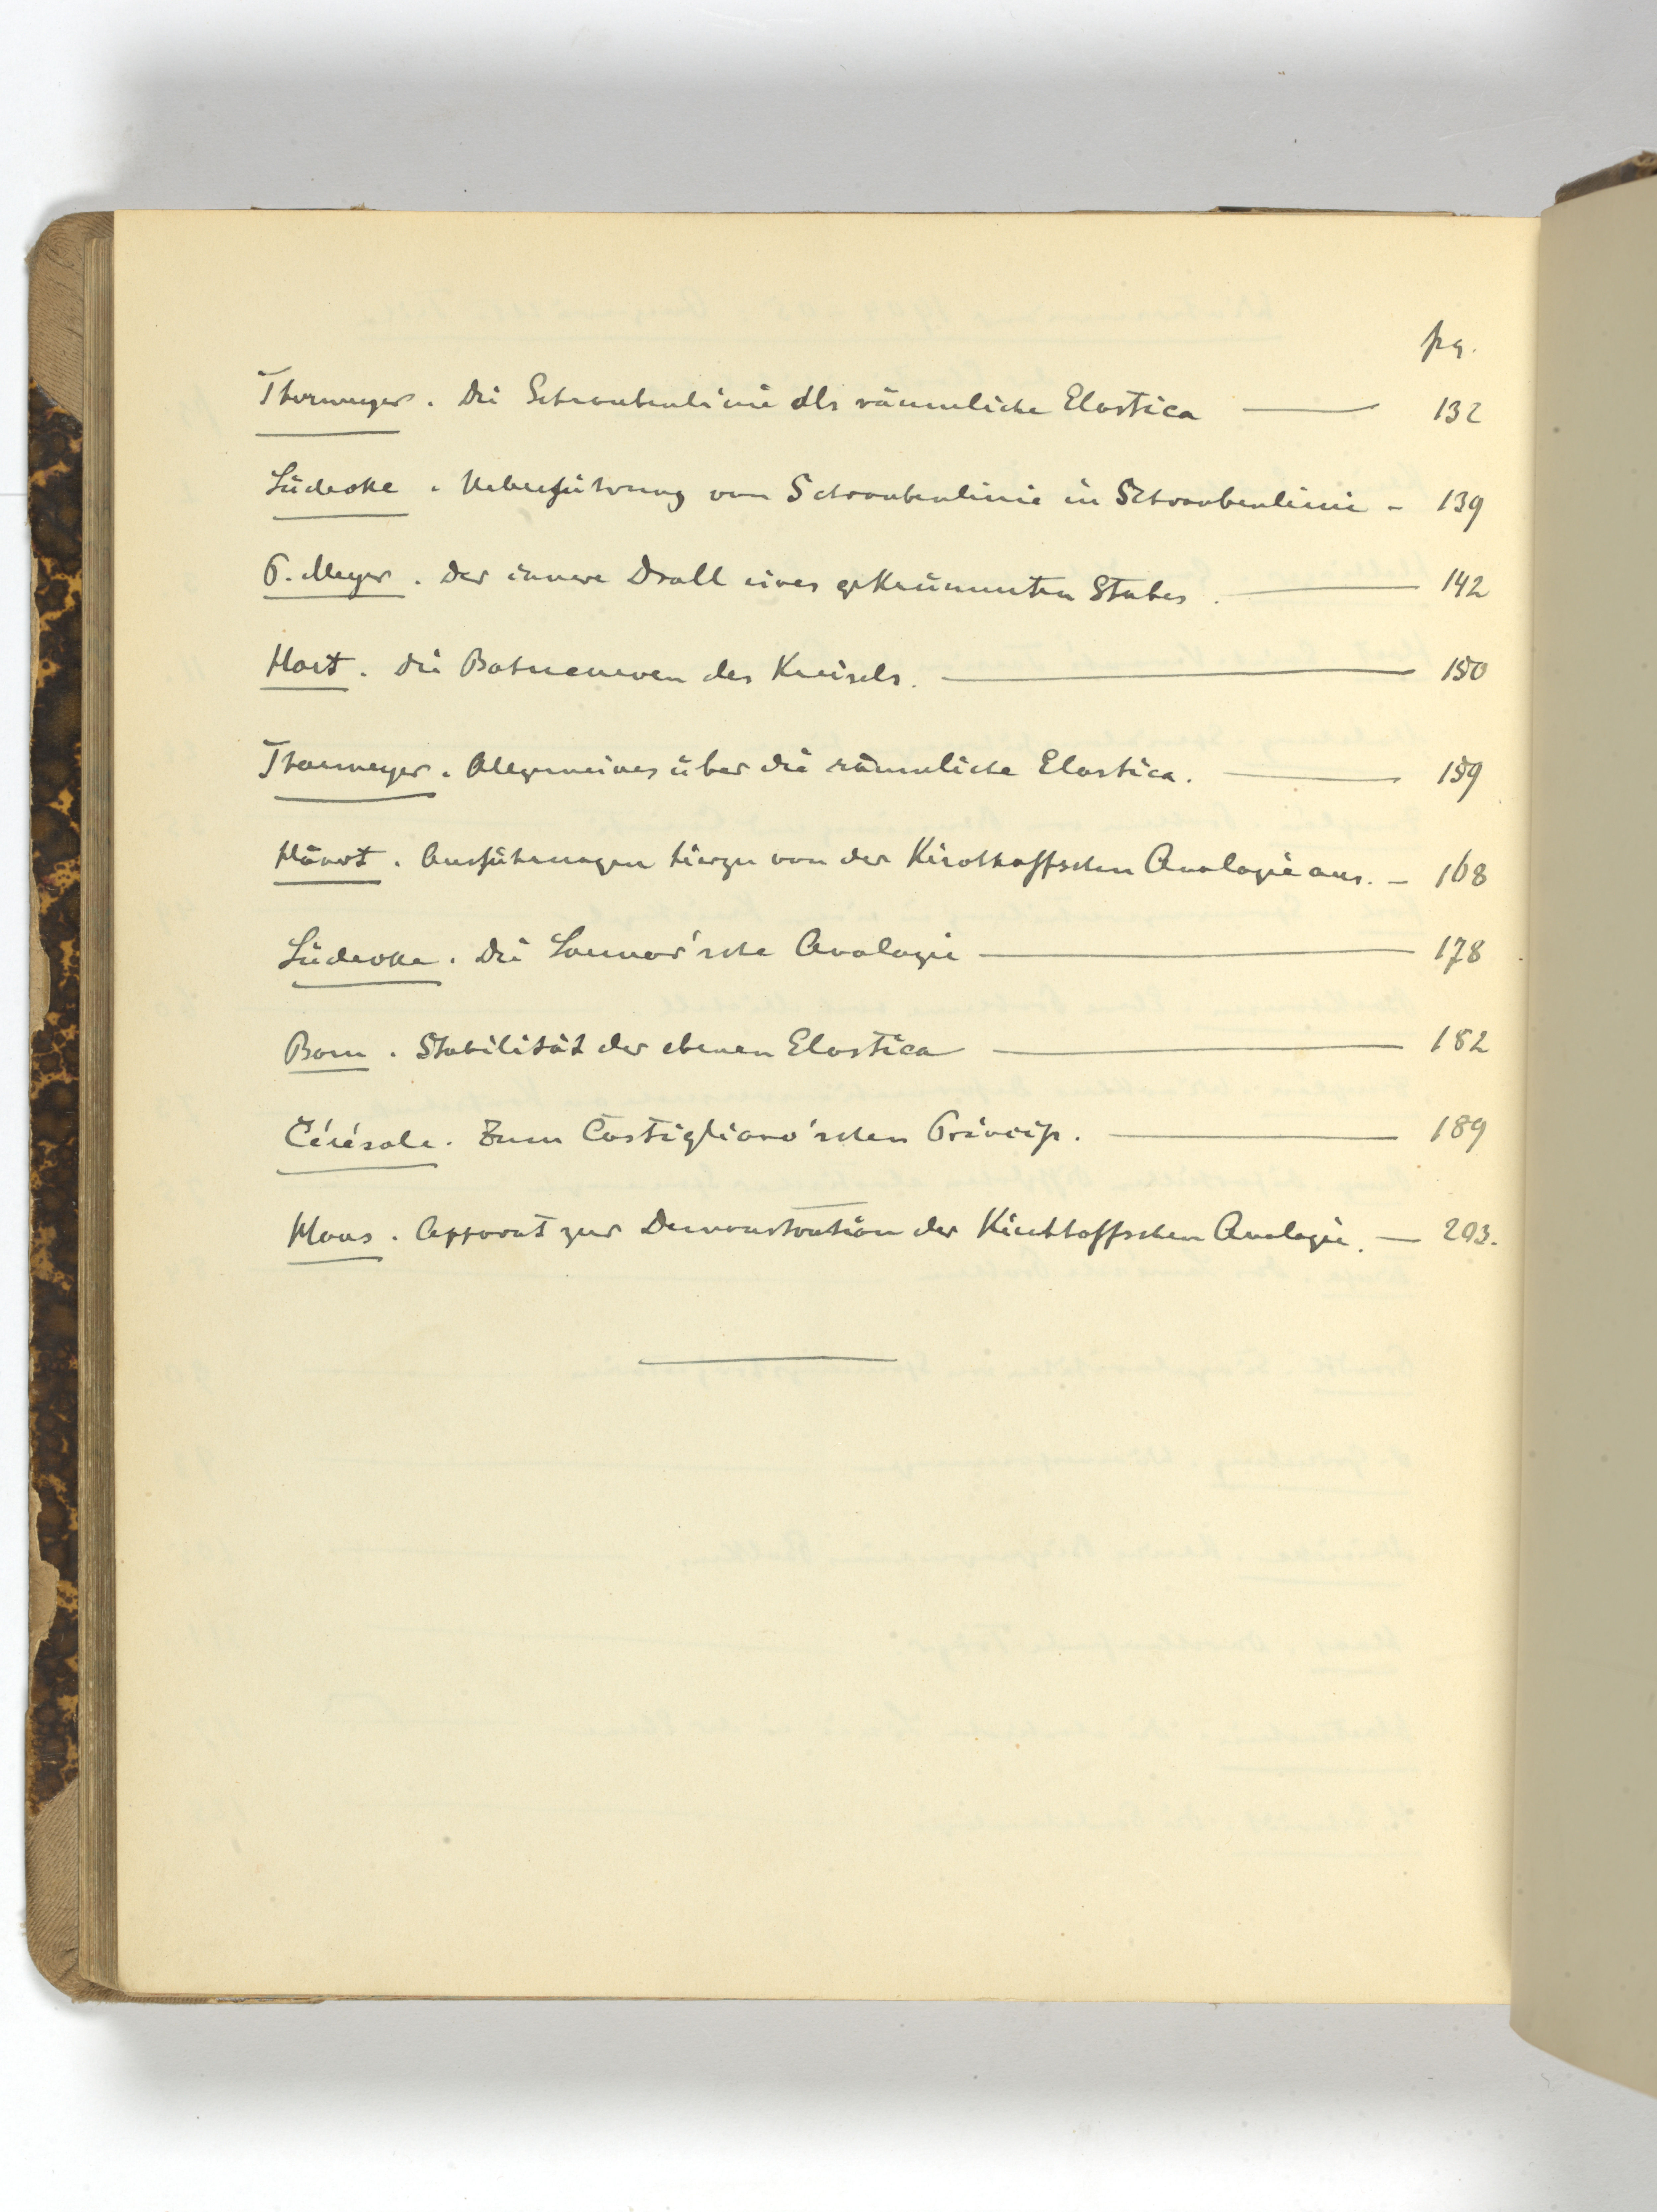 pg.
Thormeyer. Die Schraubenlinie als räumliche Elastica — 132
Lüdecke. Ueberführung von Schraubenlinie in Schraubenlinie - 139
P. Meyer. Der innere Drall eines gekrümmten Stabes. — 142
Hort. Die Bahncurven des Kreisels. — 150
Thormeyer. Allgemeines über die räumliche Elastica. — 159
Ausführungen hierzu von der Kirchhoffschen Analogie aus. — 168
Lüdecke. Die Larmor'sche Analogie — 178
Born. Stabilität der ebenen Elastica — 182
Cérésole. Zum Castigliano'schen Princip. — 189
Apparat zur Demonstration der Kirchhoffschen Analogie. — 203.